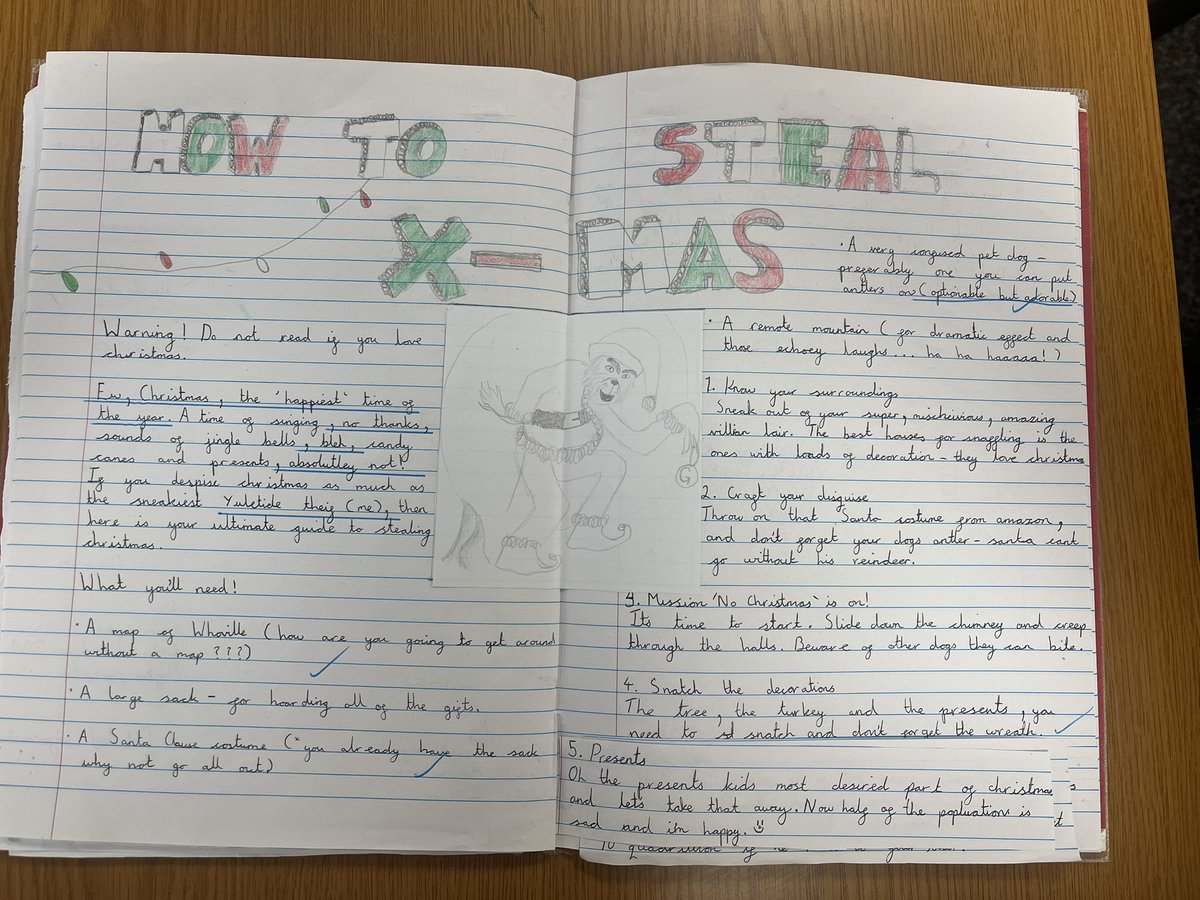 HOW TO STEAL
X-MAS
Warning! Do not read if you love
christmas.
Ew, Christmas, the 'happiest' time of
the year. A time of singing, no thanks,
sounds of jingle bells, bleh, candy
canes and presents, absolutley not!
If you despise christmas as much as
the sneakiest Yuletide theif (me), then
here is your ultimate guide to stealing
christmas.
What you'll need!
· A map of Whoville (how are you going to get around
without a map???)
· A large sack - for hoarding all of the gifts.
· A Santa Clause costume (*you already have the sack
why not go all out)
· A very confused pet dog -
preferably one you can put
antlers on (optionable but adorable)
· A remote mountain (for dramatic effect and
those echoey laughs... ha ha haaaaa!)
1. Know your surroundings
Sneak out of your super, mischeivious, amazing
villian lair. The best houses for snaffling is the
ones with loads of decoration - they love christma
2. Craft your disguise
Throw on that Santa costume from amazon,
and don't forget your dogs antler - santa cant
go without his reindeer.
3. Mission 'No Christmas' is on!
Its time to start. Slide down the chimney and creep
through the halls. Beware of other dogs they can bite.
4. Snatch the decorations
The tree, the turkey and the presents, you
need to snatch and don't forget the wreath.
5. Presents
Oh the presents kids most desired part of christmas
and let's take that away. Now half of the popluation is
sad and i'm happy.